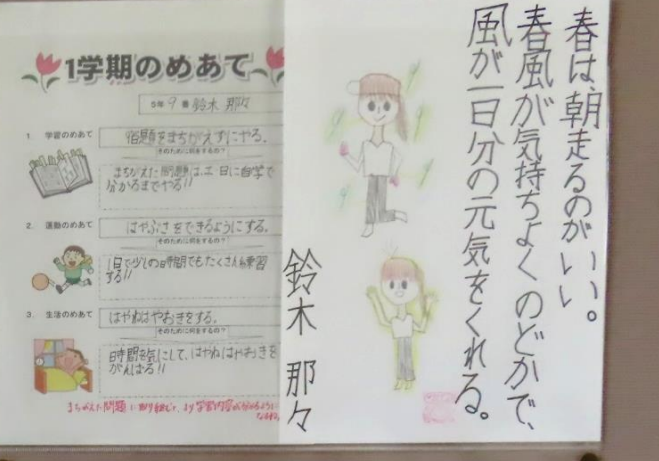 1学期のめあて
5年 9 番 鈴木 那々
1 学習のめあて
宿題をまちがえずにやる。
そのために何をするの?
まちがえた問題は、土日に自学で
分かるまでやる!!
2. 運動のめあて
はやぶさをできるようにする。
そのために何をするの?
1日で少しの時間でもたくさん練習
する!!
3. 生活のめあて
はやねはやおきをする。
そのために何をするの?
時間を気にして、はやねはやおきを
がんばる!!
まちがえた問題に取り組んで、より学習内容が
春は、朝走るのがいい。
春風が気持ちよくのどかで、
風が一日分の元気をくれる。
鈴木 那々